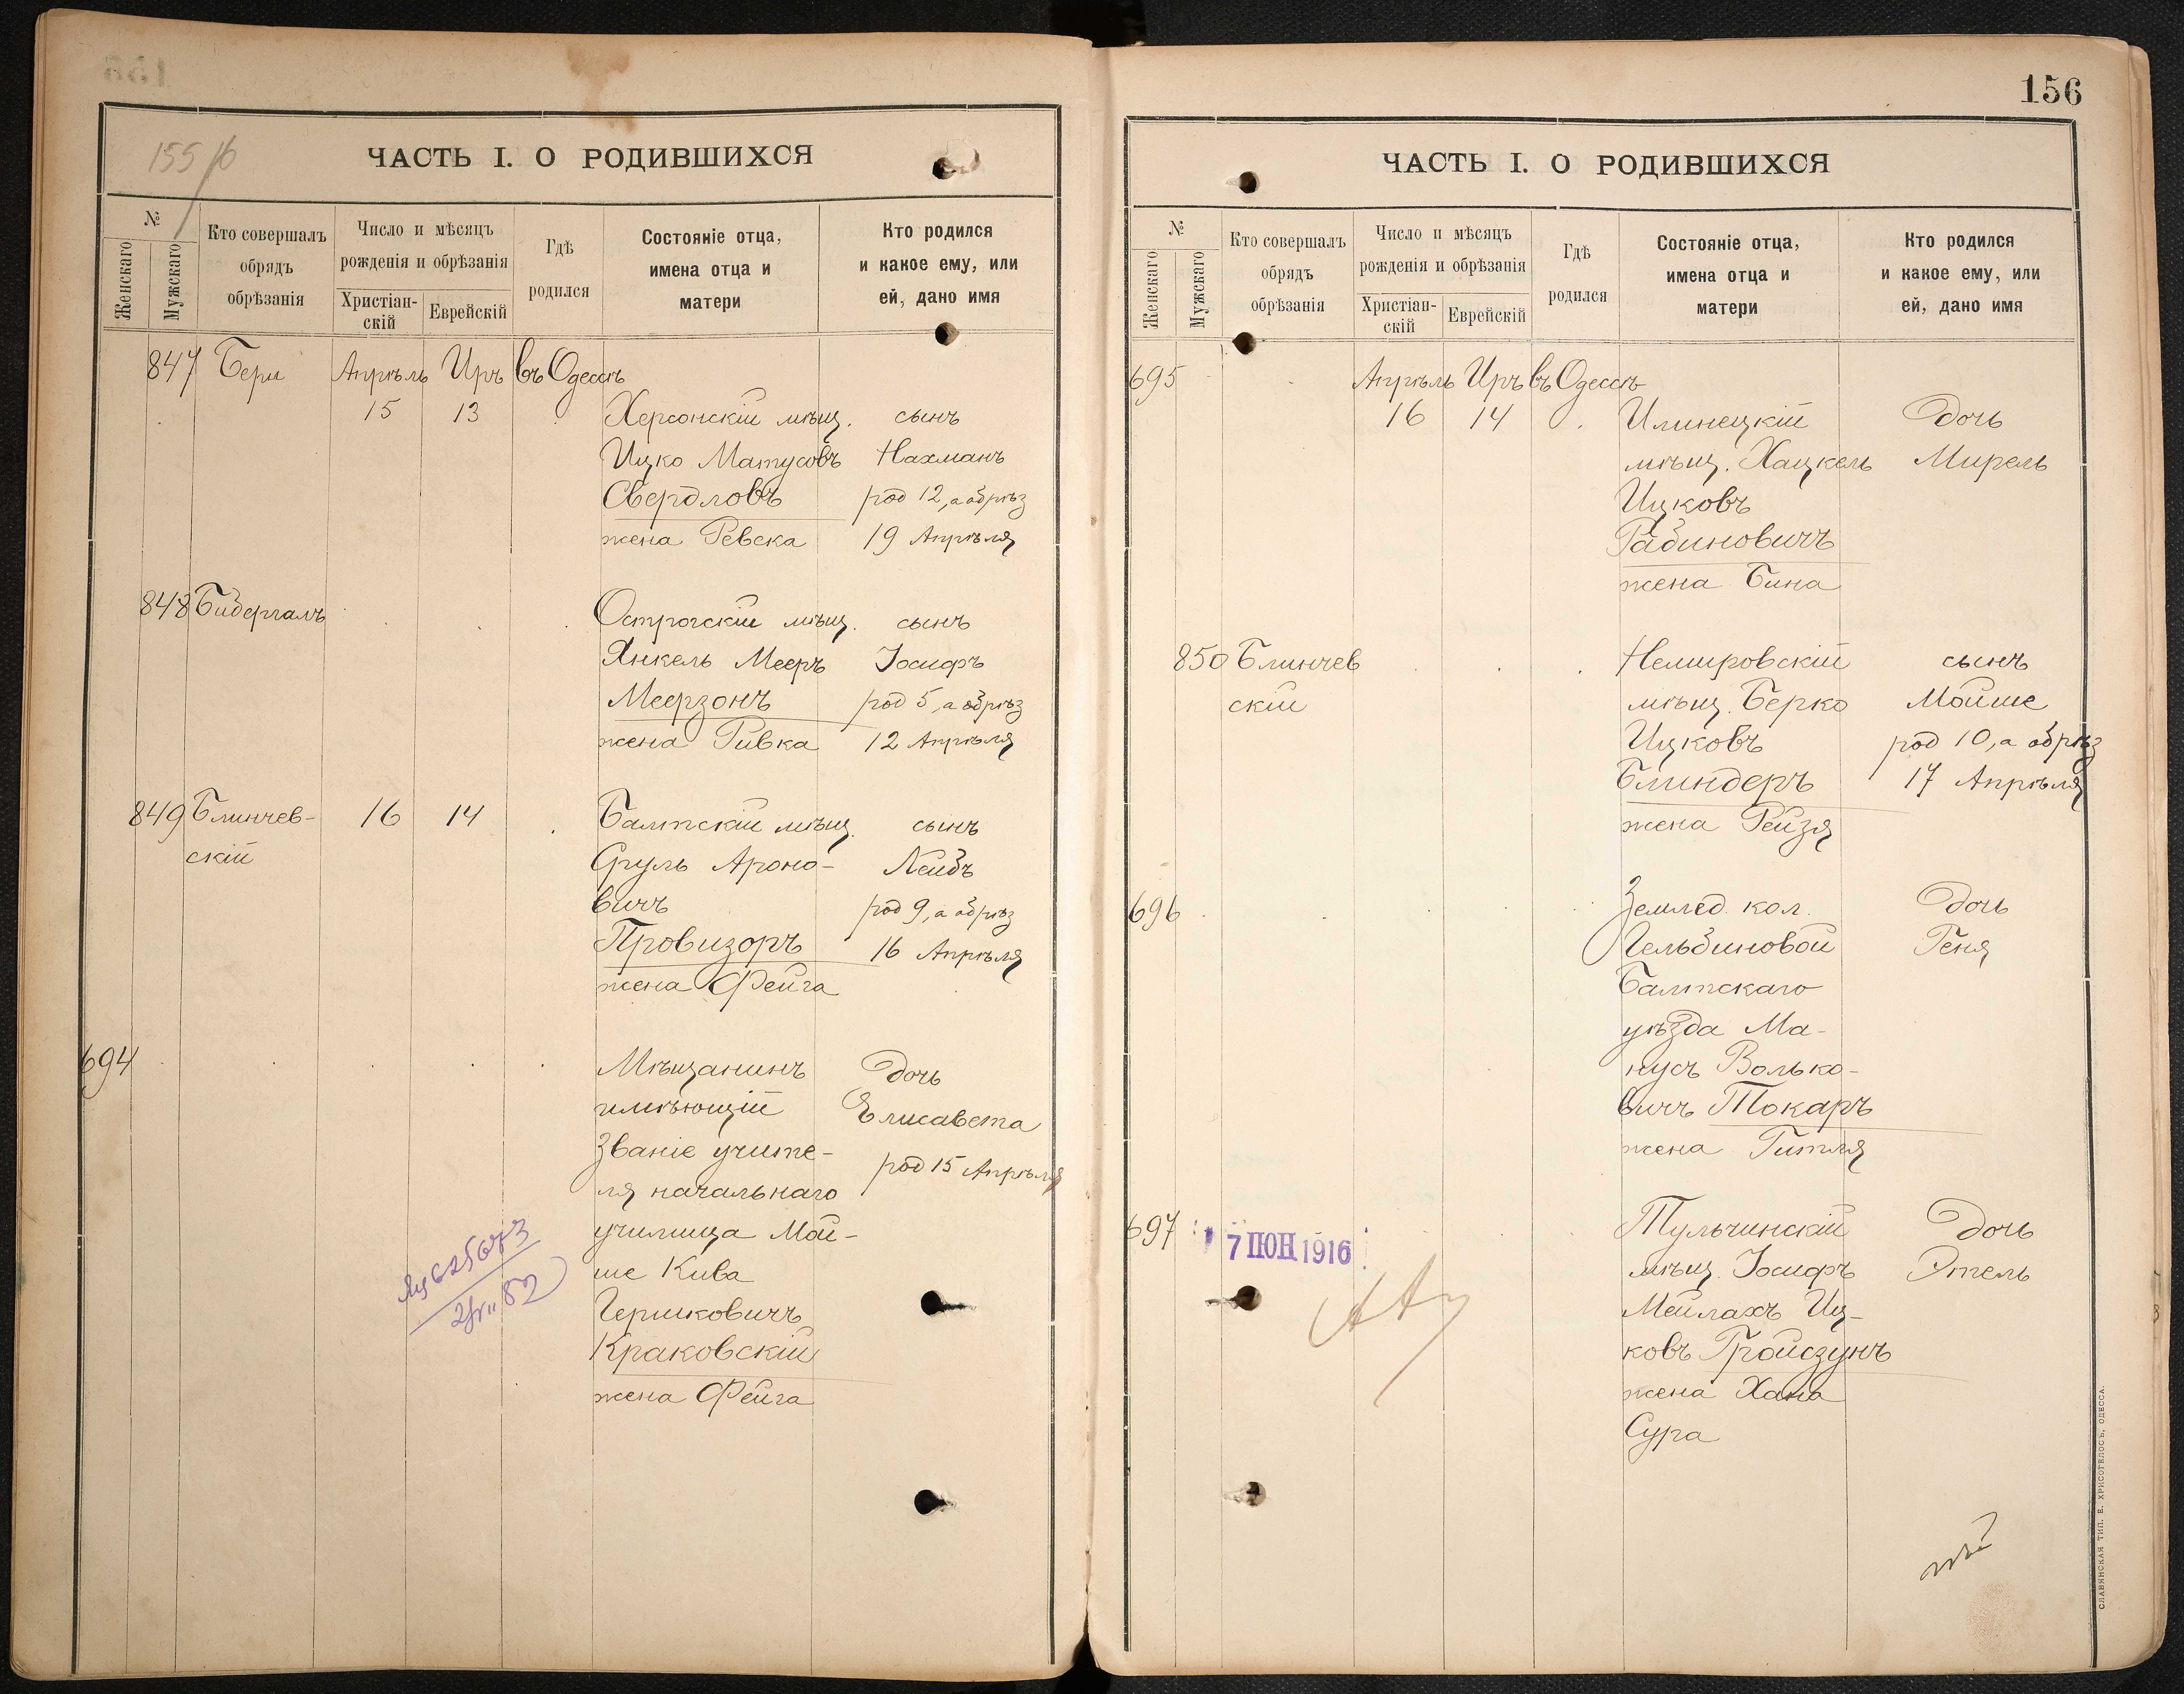 155 об
ЧАСТЬ I. О РОДИВШИХСЯ
№
Женскаго
Мужскаго
Кто совершалъ
обрядъ
обрѣзанія
Число и мѣсяцъ
рожденія и обрѣзанія
Христіан-
скій
Еврейскій
Гдѣ
родился
Состояніе отца,
имена отца и
матери
Кто родился
и какое ему, или
ей, дано имя
847 Бери Апрѣль Иръ въ Одессѣ
15 13 Херсонскій мѣщ. сынъ
Ицко Матусовъ Нахманъ
Свердловъ род 12, а обрѣз
жена Ревека 19 Апрѣля
848 Бидергалъ Острогскій мѣщ. сынъ
Янкель Мееръ Іосифъ
Меерзонъ род 5, а обрѣз
жена Ривка 12 Апрѣля
849 Блинчев- 16 14 Балтскій мѣщ. сынъ
скій Сруль Ароно- Лейбъ
вичъ род 9, а обрѣз
Провизоръ 16 Апрѣля
жена Фейга
694 Мѣщанинъ Дочь
имѣющій Елисавета
званіе учите- род 15 Апрѣля
ля начальнаго
училища Мой-
ше Кива
Гершковичъ
Краковскій
жена Фейга
156
ЧАСТЬ I. О РОДИВШИХСЯ
№
Женскаго
Мужскаго
Кто совершалъ
обрядъ
обрѣзанія
Число и мѣсяцъ
рожденія и обрѣзанія
Христіан-
скій
Еврейскій
Гдѣ
родился
Состояніе отца,
имена отца и
матери
Кто родился
и какое ему, или
ей, дано имя
695 Апрѣль Иръ въ Одессѣ
16 14 Илинецкій Дочь
мѣщ. Хацкель Мирель
Ицковъ
Рабиновичъ
жена Бина
850 Блинчев Немировскій сынъ
скій мѣщ. Берко Мойше
Ицковъ род 10, а обрѣз
Блиндеръ 17 Апрѣля
жена Рейзя
696 Землед. кол. Дочь
Гельбиновой Геня
Балтскаго
уѣзда Ма-
нусъ Волько-
вичъ Токаръ
жена Гитля
697 Тульчинскій Дочь
7 ІЮН 1916
мѣщ. Іосифъ Этель
Мейлахъ Иц-
ковъ Гройсзунъ
жена Хана
Сура
СЛАВЯНСКАЯ ТИП. Е. ХРИСОГЕЛОСЪ, ОДЕССА.